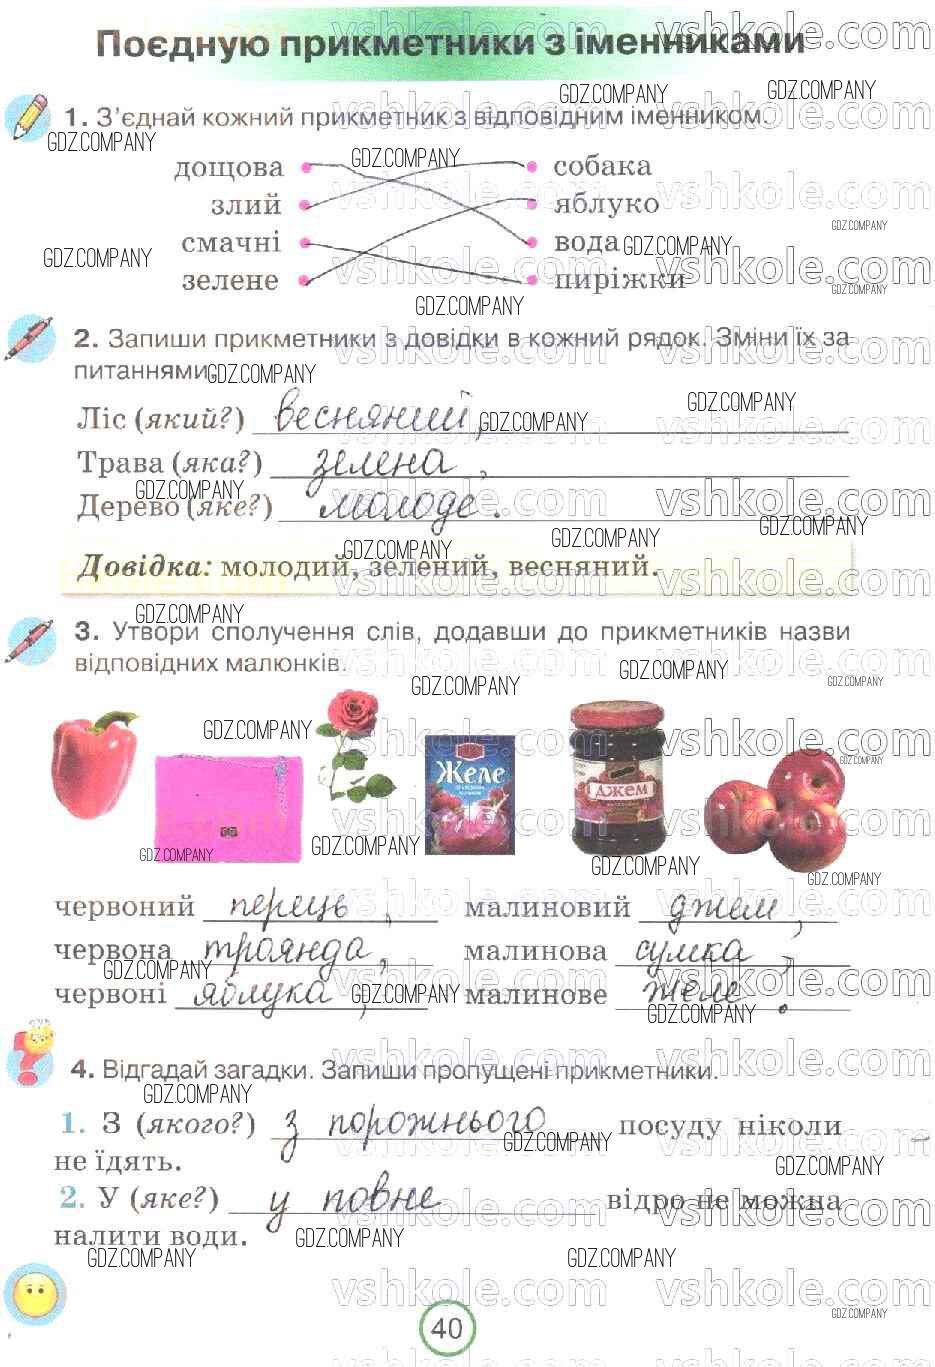 Поєдную прикметники з іменниками
1. З’єднай кожний прикметник з відповідним іменником.
дощова собака
злий яблуко
смачні вода
зелене пиріжки
2. Запиши прикметники з довідки в кожний рядок. Зміни їх за
питаннями.
Ліс (який?) весняний,
Трава (яка?) зелена,
Дерево (яке?) молоде.
Довідка: молодий, зелений, весняний.
3. Утвори сполучення слів, додавши до прикметників назви
відповідних малюнків.
Желе
джем
червоний перець, малиновий джем,
червона троянда, малинова сумка,
червоні яблука, малинове желе.
4. Відгадай загадки. Запиши пропущені прикметники.
1. З (якого?) з порожнього посуду ніколи
не їдять.
2. У (яке?) у повне відро не можна
налити води.
40
GDZ.COMPANY
vshkole.com